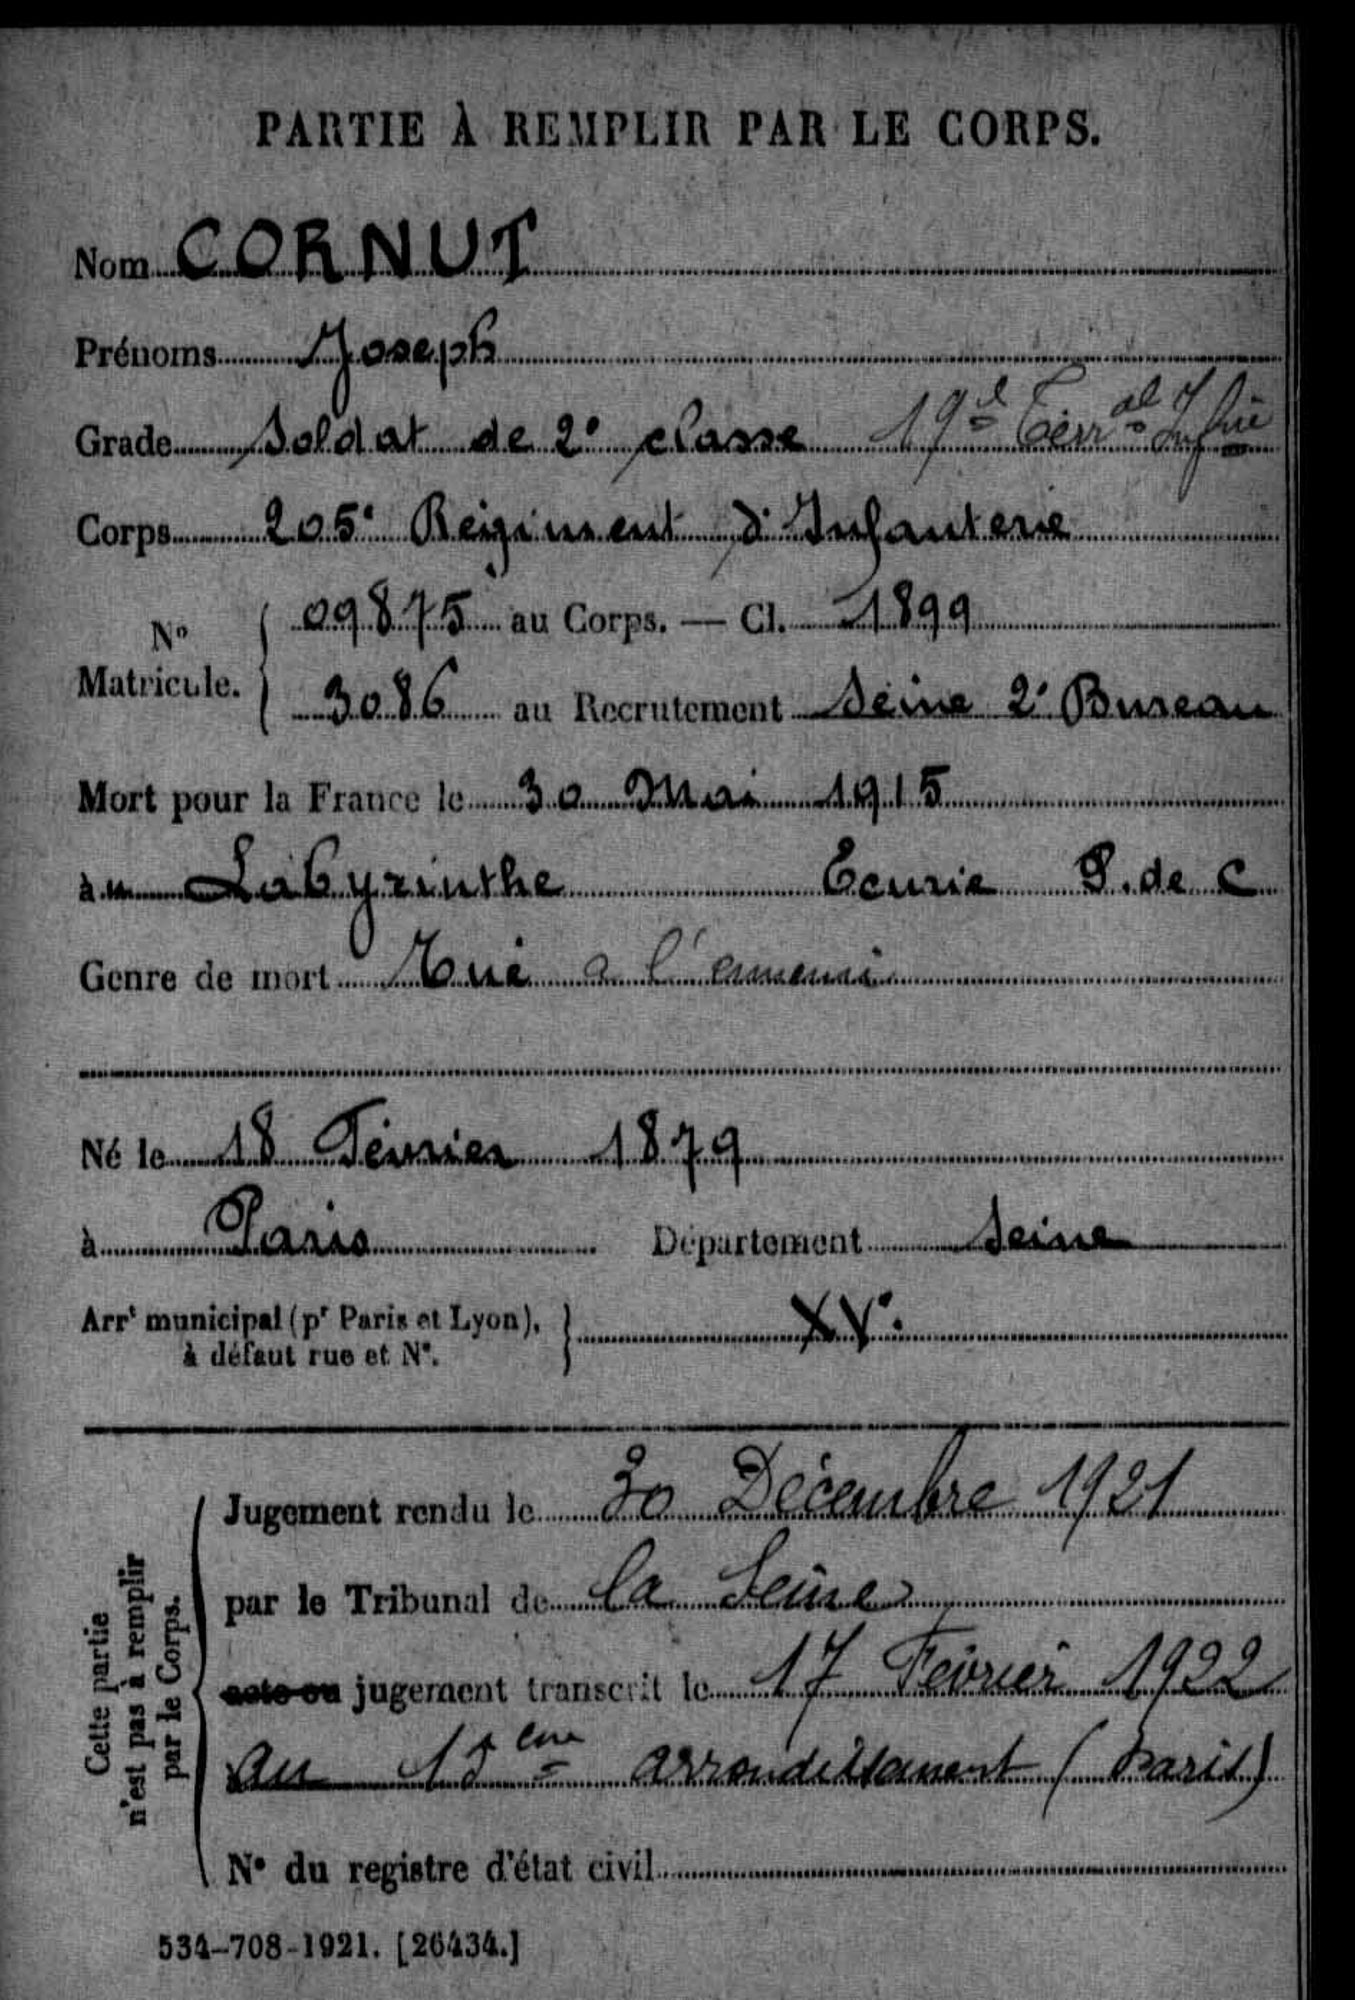 PARTIE À REMPLIR PAR LE CORPS.
Nom CORNUT
Prénoms Joseph
Grade Soldat de 2e classe 19e Terral Infrie
Corps 205e Régiment d'Infanterie
No Matricule. { 09875 au Corps. — Cl. 1899
3086 au Recrutement Seine 2e Bureau
Mort pour la France le 30 Mai 1915
àu Labyrinthe Ecurie P. de C
Genre de mort Tué a l'ennemi
Né le 18 Février 1879
à Paris Département Seine
Arrt municipal (pr Paris et Lyon), à défaut rue et No. } XVe.
Cette partie n'est pas à remplir par le Corps.
Jugement rendu le 30 Décembre 1921
par le Tribunal de la Seine
acte ou jugement transcrit le 17 Février 1922
au 15eme arrondissement (Paris)
No du registre d'état civil
534-708-1921. [26434.]